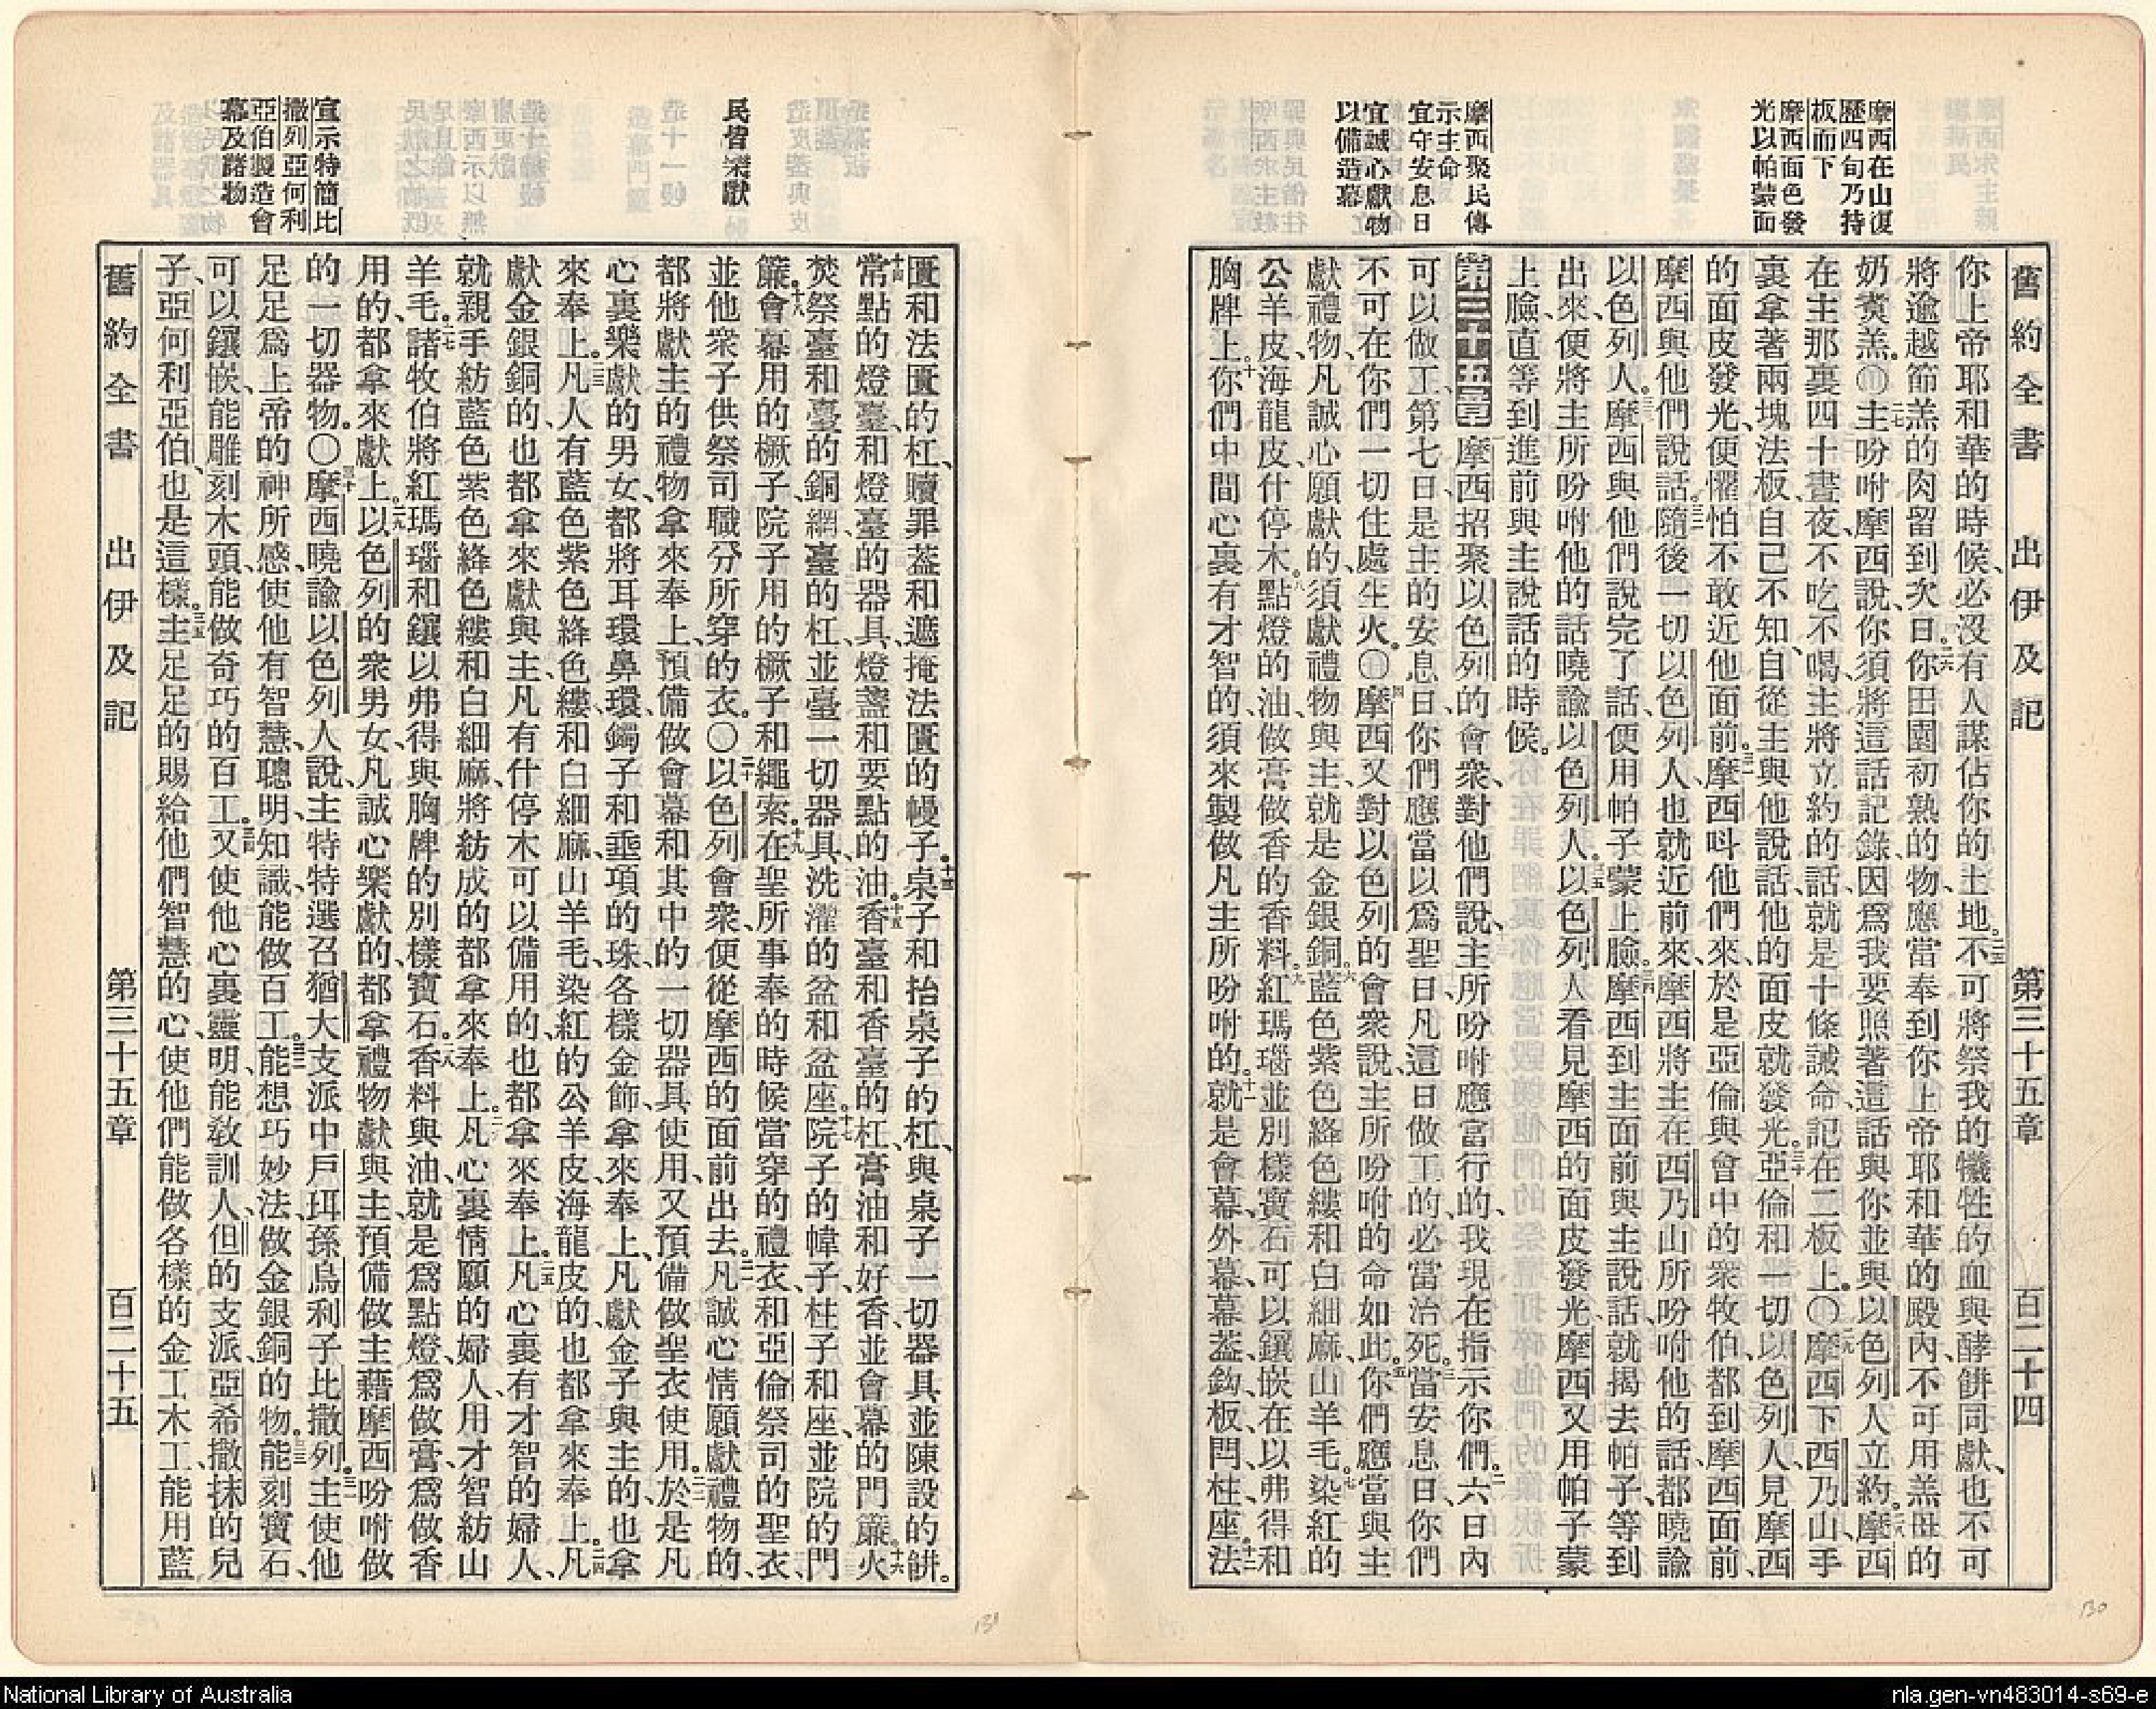 舊約全書 出伊及記 第三十五章 百二十四
摩西在山復
歷四旬乃持
板而下
摩西面色發
光以帕蒙面
摩西聚民傳
示主命
宜守安息日
宜誠心獻物
以備造幕
你上帝耶和華的時候、必沒有人謀佔你的土地。二五不可將祭我的犧牲的血與酵餅同獻、也不可
將逾越節羔的肉留到次日。二六你田園初熟的物、應當奉到你上帝耶和華的殿內、不可用羔母的
奶煑羔。〇二七主吩咐摩西說、你須將這話記錄、因爲我要照著這話與你並與以色列人立約。二八摩西
在主那裏四十晝夜、不吃不喝、主將立約的話、就是十條誡命記在二板上。〇二九摩西下西乃山、手
裏拿著兩塊法板、自己不知、自從主與他說話、他的面皮就發光。三十亞倫和一切以色列人見摩西
的面皮發光、便懼怕不敢近他面前。三一摩西呌他們來、於是亞倫與會中的衆牧伯、都到摩西面前、
摩西與他們說話。三二隨後一切以色列人也就近前來、摩西將主在西乃山所吩咐他的話、都曉諭
以色列人。三三摩西與他們說完了話、便用帕子蒙上臉。三四摩西到主面前與主說話、就揭去帕子、等到
出來、便將主所吩咐他的話曉諭以色列人。三五以色列人看見摩西的面皮發光、摩西又用帕子蒙
上臉、直等到進前與主說話的時候。
第三十五章 摩西招聚以色列的會衆、對他們說、主所吩咐應當行的、我現在指示你們。二六日內
可以做工、第七日是主的安息日、你們應當以爲聖日、凡這日做工的、必當治死。三當安息日、你們
不可在你們一切住處生火。〇四摩西又對以色列的會衆說、主所吩咐的命如此。五你們應當與主
獻禮物、凡誠心願獻的、須獻禮物與主、就是金銀銅。六藍色紫色絳色縷和白細麻、山羊毛。七染紅的
公羊皮、海龍皮、什停木。八點燈的油、做膏做香的香料。九紅瑪瑙並別樣寶石、可以鑲嵌在以弗得和
胸牌上。十你們中間心裏有才智的、須來製做凡主所吩咐的。十一就是會幕、外幕、幕葢、鈎、板、閂、柱、座。十二法
民皆樂獻
宣示特簡比
撒列亞何利
亞伯製造會
幕及諸物
匱和法匱的杠、贖罪葢和遮掩法匱的幔子。十三桌子和抬桌子的杠、與桌子一切器具並陳設的餅。
十四常點的燈臺、和燈臺的器具、燈盞和要點的油。十五香臺和香臺的杠、膏油和好香、並會幕的門簾。十六火
焚祭臺和臺的銅網、臺的杠、並臺一切器具、洗濯的盆和盆座。十七院子的幃子、柱子和座、並院的門
簾。十八會幕用的橛子、院子用的橛子和繩索。十九在聖所事奉的時候當穿的禮衣、和亞倫祭司的聖衣、
並他衆子供祭司職分所穿的衣。〇二十以色列會衆、便從摩西的面前出去。二一凡誠心情願獻禮物的、
都將獻主的禮物拿來奉上、預備做會幕和其中的一切器具使用、又預備做聖衣使用。二二於是凡
心裏樂獻的男女、都將耳環鼻環、鐲子和垂項的珠、各樣金飾、拿來奉上、凡獻金子與主的、也拿
來奉上。二三凡人有藍色紫色絳色縷、和白細麻、山羊毛、染紅的公羊皮、海龍皮的、也都拿來奉上。二四凡
獻金銀銅的、也都拿來獻與主、凡有什停木可以備用的、也都拿來奉上。二五凡心裏有才智的婦人、
就親手紡藍色紫色絳色縷和白細麻、將紡成的都拿來奉上。二六凡心裏情願的婦人、用才智紡山
羊毛。二七諸牧伯將紅瑪瑙和鑲以弗得與胸牌的別樣寶石。二八香料與油、就是爲點燈、爲做膏、爲做香
用的、都拿來獻上。二九以色列的衆男女、凡誠心樂獻的、都拿禮物獻與主、預備做主藉摩西吩咐做
的一切器物。〇三十摩西曉諭以色列人說、主特特選召猶大支派中戶珥孫烏利子比撒列。三一主使他
足足爲上帝的神所感、使他有智慧、聰明、知識、能做百工。三二能想巧妙法、做金銀銅的物。三三能刻寶石、
可以鑲嵌、能雕刻木頭、能做奇巧的百工。三四又使他心裏靈明、能敎訓人、但的支派、亞希撒抹的兒
子、亞何利亞伯、也是這樣。三五主足足的賜給他們智慧的心、使他們能做各樣的金工木工、能用藍
舊約全書 出伊及記 第三十五章 百二十五
130
131
National Library of Australia
nla.gen-vn483014-s69-e